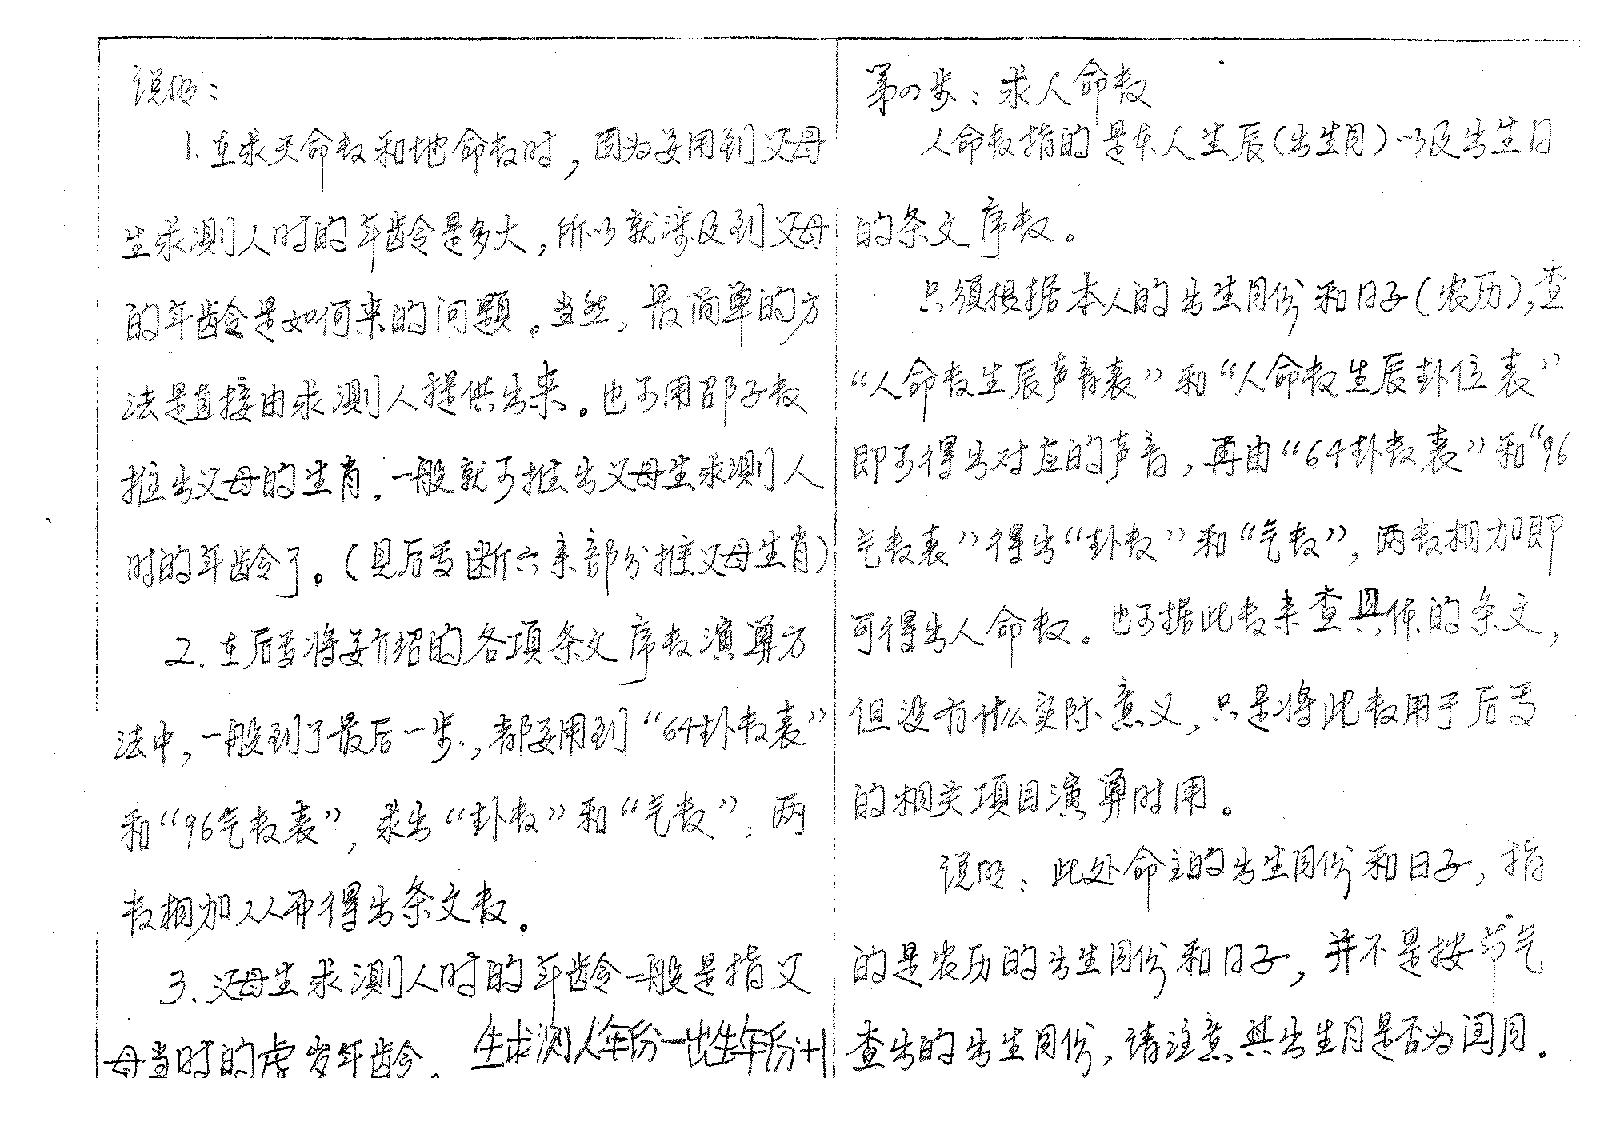 说明：
1.在求天命数和地命数时，因为要用到父母
生求测人时的年龄是多大，所以就涉及到父母
的年龄是如何来的问题。当然，最简单的方
法是直接由求测人提供出来。也可用邵子数
推出父母的生肖。一般就可推出父母生求测人
时的年龄了。（见后面断六亲部分推父母生肖）
2.在后面将要介绍的各项条文序数演算方
法中，一般到了最后一步，都要用到“64卦数表”
和“96气数表”，求出“卦数”和“气数”，两
数相加从而得出条文数。
3.父母生求测人时的年龄一般是指父
母当时的虚岁年龄、生求测人年份一出生年份+1
第四步：求人命数
人命数指的是本人生辰（出生月）以及出生日
的条文序数。
只须根据本人的出生月份和日子（农历），查
“人命数生辰声音表”和“人命数生辰卦位表”
即可得出对应的声音，再由“64卦数表”和“96
气数表”得出“卦数”和“气数”，两数相加即
可得出人命数。也可据此数来查具体的条文，
但没有什么实际意义，只是将此数用于后面
的相关项目演算时用。
说明：此处命主的出生月份和日子，指
的是农历的出生月份和日子，并不是按节气
查出的出生月份，请注意其出生月是否为闰月。